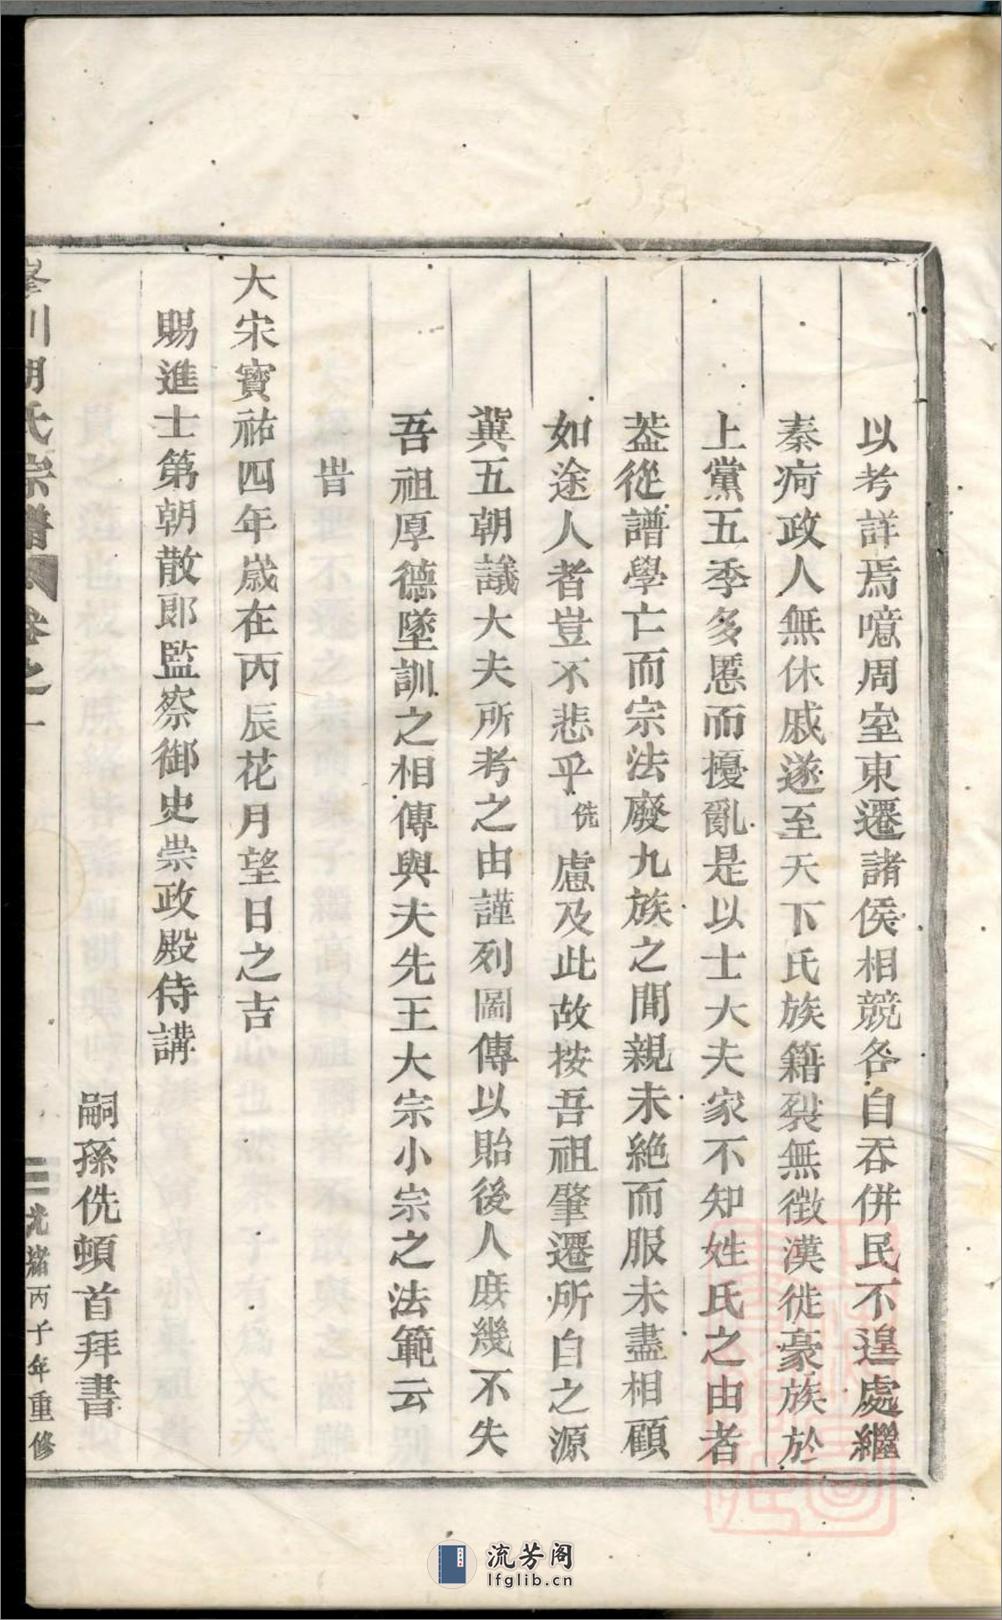 以考詳焉噫周室東遷諸侯相競各自吞併民不遑處繼
秦苛政人無休戚遂至天下氏族籍裂無徵漢徙豪族於
上黨五季多慝而擾亂是以士大夫家不知姓氏之由者
葢從譜學亡而宗法廢九族之間親未絶而服未盡相顧
如途人者豈不悲乎侁慮及此故按吾祖肇遷所自之源
冀五朝議大夫所考之由謹列圖傳以貽後人庶幾不失
吾祖厚德墜訓之相傳與夫先王大宗小宗之法範云
旹
大宋寳祐四年歲在丙辰花月望日之吉
賜進士第朝散郎監察御史崇政殿侍講
嗣孫侁頓首拜書
川胡氏宗譜 卷之一 光緒丙子年重修
流芳阁
lfglib.cn